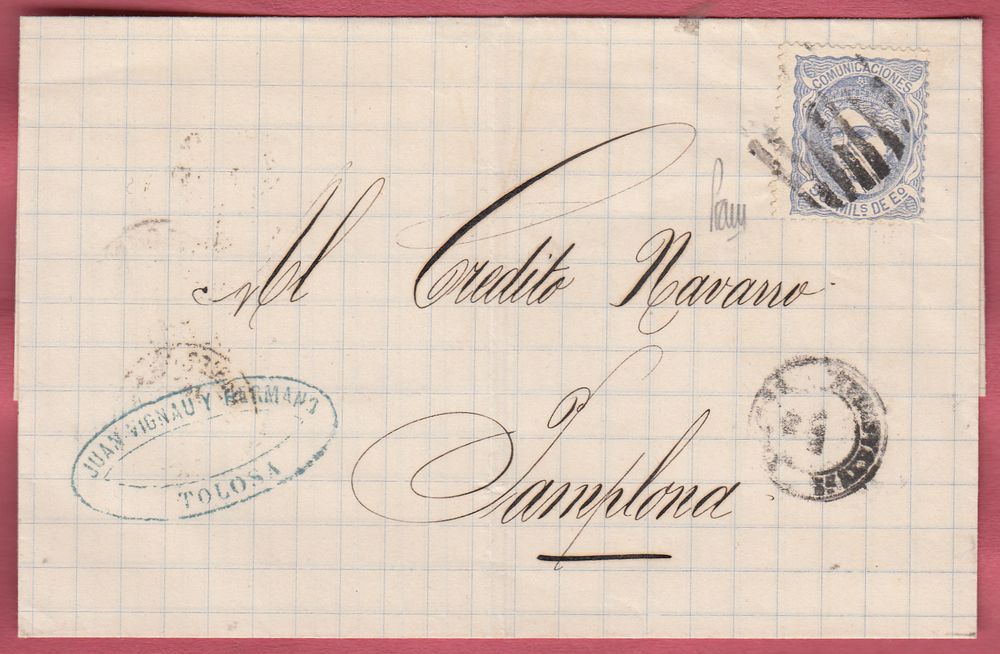 COMUNICACIONES
MILS DE Eº
Al Credito Navarro
Pamplona
JUAN VIGNAU Y HERMANO
TOLOSA